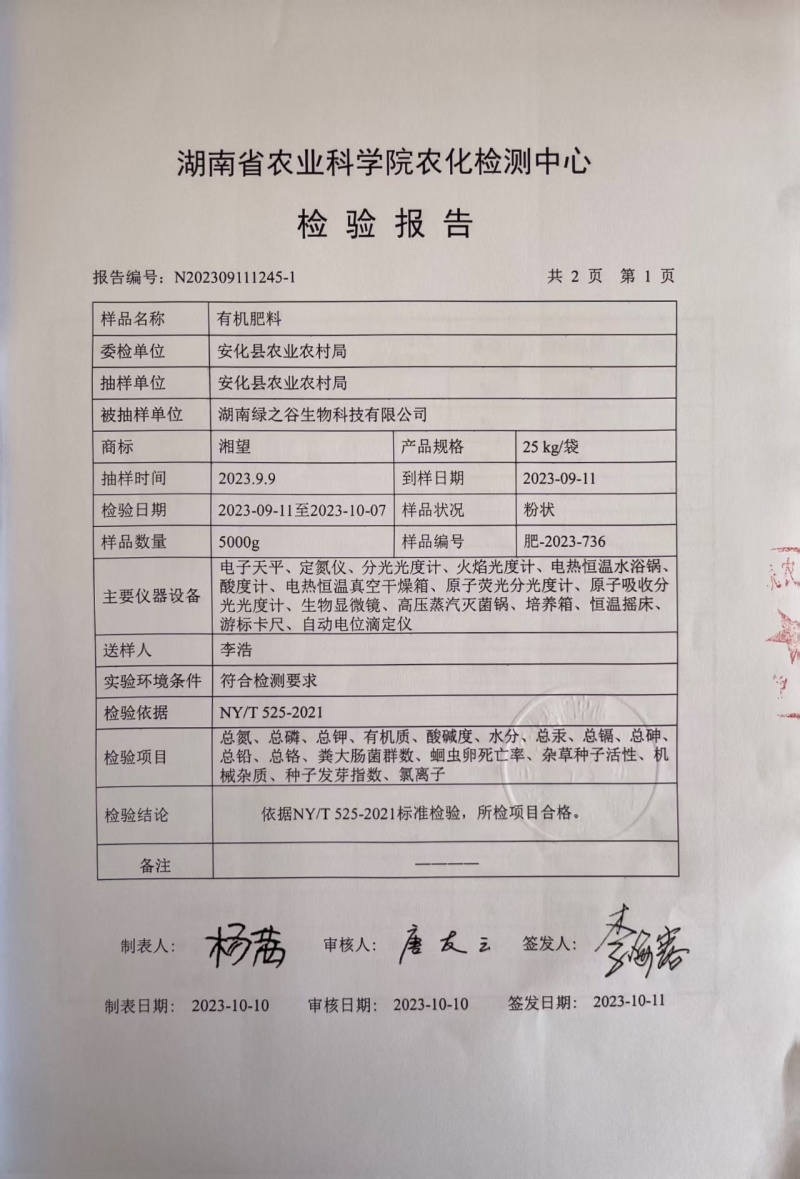 湖南省农业科学院农化检测中心
检验报告
报告编号：N202309111245-1 共 2 页 第 1 页
样品名称 有机肥料
委检单位 安化县农业农村局
抽样单位 安化县农业农村局
被抽样单位 湖南绿之谷生物科技有限公司
商标 湘望 产品规格 25 kg/袋
抽样时间 2023.9.9 到样日期 2023-09-11
检验日期 2023-09-11至2023-10-07 样品状况 粉状
样品数量 5000g 样品编号 肥-2023-736
主要仪器设备 电子天平、定氮仪、分光光度计、火焰光度计、电热恒温水浴锅、
酸度计、电热恒温真空干燥箱、原子荧光分光光度计、原子吸收分
光光度计、生物显微镜、高压蒸汽灭菌锅、培养箱、恒温摇床、
游标卡尺、自动电位滴定仪
送样人 李浩
实验环境条件 符合检测要求
检验依据 NY/T 525-2021
检验项目 总氮、总磷、总钾、有机质、酸碱度、水分、总汞、总镉、总砷、
总铅、总铬、粪大肠菌群数、蛔虫卵死亡率、杂草种子活性、机
械杂质、种子发芽指数、氯离子
检验结论 依据NY/T 525-2021标准检验，所检项目合格。
备注 ————
制表人： 杨茜 审核人： 唐友云 签发人：
制表日期： 2023-10-10 审核日期： 2023-10-10 签发日期： 2023-10-11